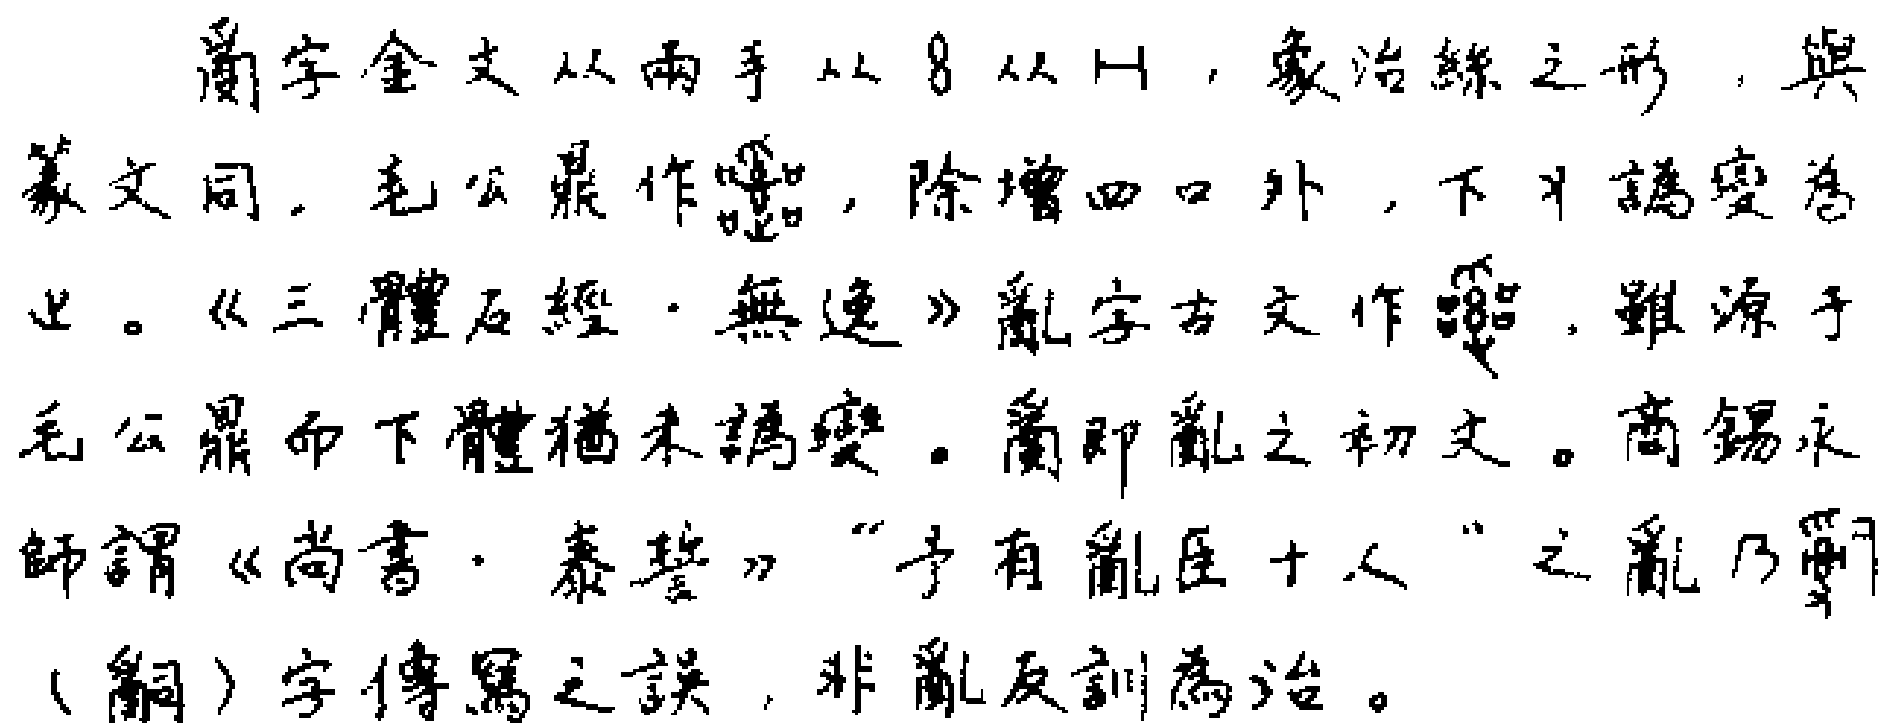 𤔔字金文从兩手从8从H，象治絲之形，與
篆文同。毛公鼎作，除增四口外，下又譌變為
止。《三體石經·無逸》亂字古文作，雖源于
毛公鼎而下體猶未譌變。𤔔即亂之初文。商錫永
師謂《尚書·泰誓》“予有亂臣十人”之亂乃
（𤔲）字傳寫之誤，非亂反訓為治。